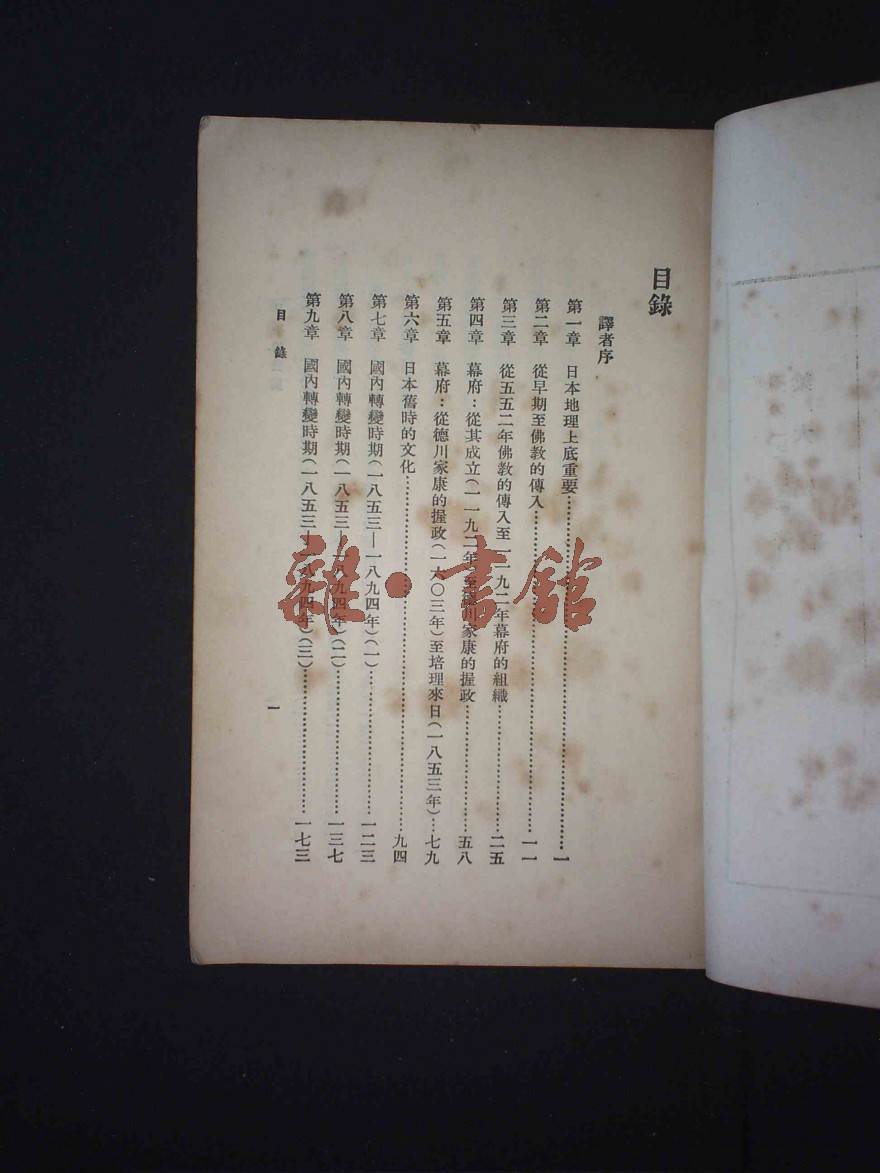 目錄
譯者序
第一章 日本地理上底重要……一
第二章 從早期至佛教的傳入……一一
第三章 從五五二年佛教的傳入至一一九二年幕府的組織……二五
第四章 幕府：從其成立(一一九二年)至德川家康的握政……五八
第五章 幕府：從德川家康的握政(一六〇三年)至培理來日(一八五三年)…七九
第六章 日本舊時的文化……九四
第七章 國內轉變時期(一八五三—一八九四年)(一)……一二三
第八章 國內轉變時期(一八五三—一八九四年)(二)……一三七
第九章 國內轉變時期(一八五三—一八九四年)(三)……一七三
目錄
一
雜·書館